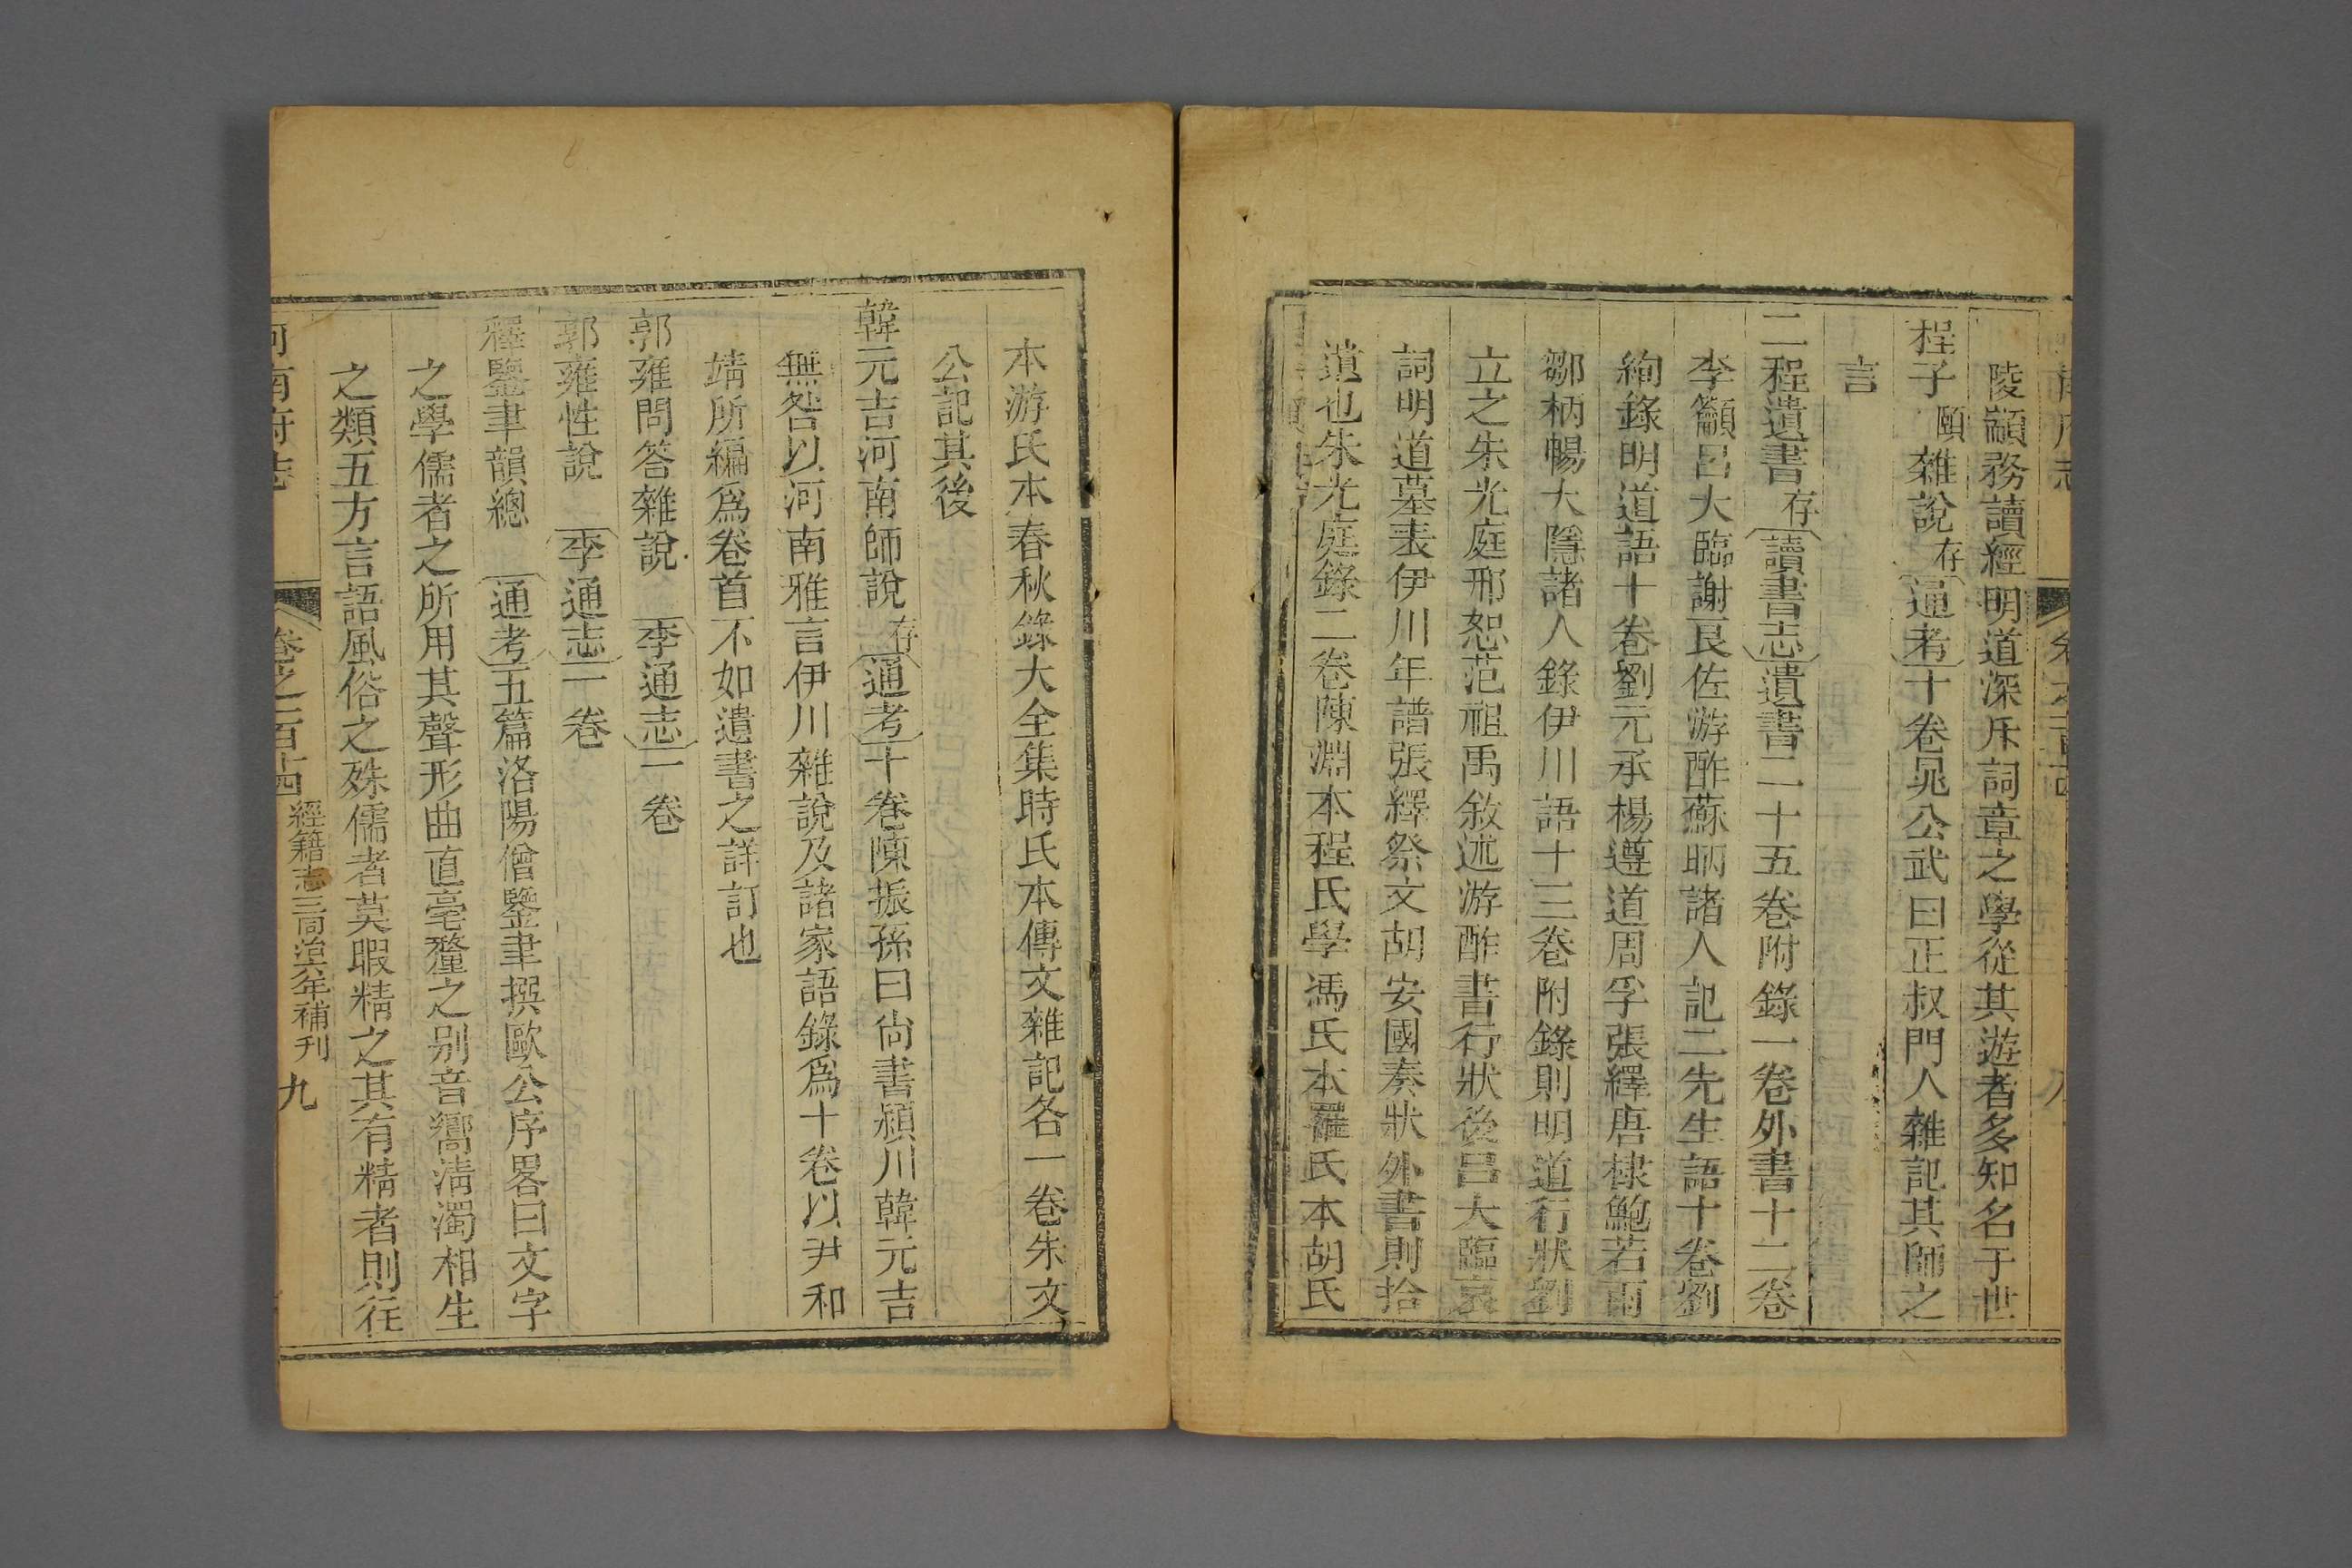 陵顓務讀經明道深斥詞章之學從其遊者多知名于世
程子頤雜說存通考十卷晁公武曰正叔門人雜記其師之
言
二程遺書存讀書志遺書二十五卷附錄一卷外書十二卷
李籲呂大臨謝良佐游酢蘇昞諸人記二先生語十卷劉
絢錄明道語十卷劉元承楊遵道周孚張繹唐棣鮑若雨
鄒柄暢大隱諸人錄伊川語十三卷附錄則明道行狀劉
立之朱光庭邢恕范祖禹敘述游酢書行狀後呂大臨哀
詞明道墓表伊川年譜張繹祭文胡安國奏狀外書則拾
遺也朱光庭錄二卷陳淵本程氏學馮氏本羅氏本胡氏
本游氏本春秋錄大全集時氏本傳文雜記各一卷朱文
公記其後
韓元吉河南師說存通考十卷陳振孫曰尙書潁川韓元吉
無咎以河南雅言伊川雜說及諸家語錄爲十卷以尹和
靖所編爲卷首不如遺書之詳訂也
郭雍問答雜說 李通志一卷
郭雍性說 李通志一卷
釋鑒聿韻總 通考五篇洛陽僧鑒聿撰歐公序畧曰文字
之學儒者之所用其聲形曲直毫釐之別音嚮淸濁相生
之類五方言語風俗之殊儒者莫暇精之其有精者則往
河南府志 卷之一百十四 經籍志三同治六年補刊 九